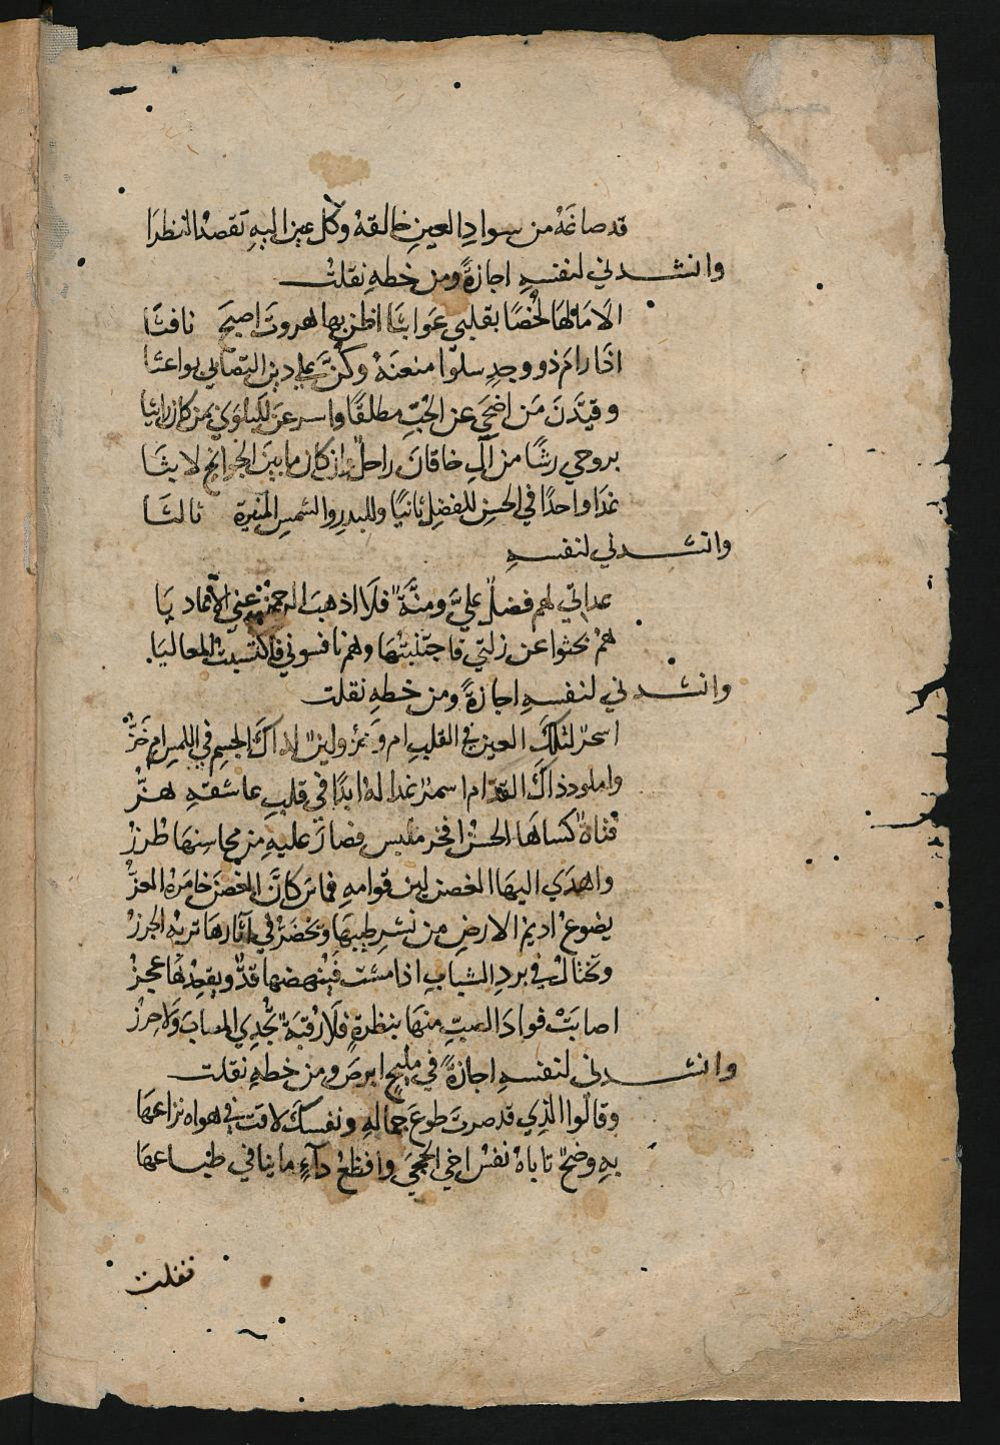 قد صاغَهُ من سوادِ العينِ خالقهُ وكل عين اليهِ تقصد النظرا
وانشدني لنفسهِ اجازةً ومن خطهِ نقلتُ
الا مَا لهَا لحْصًا بقلبي عَوابثًا اظن بها هروتَ اصبحَ نافثًا
اذَا رامَ ذو وجدٍ سلوّا منعنَهُ وكنَّ علي دين التصابي بواعثَا
وقيّدنَ مَن اضحَي عن الحُبِّ مطلقًا واسرعنَ للبلوَي بمن كان رائثا
بروحي رشًا من آلِ خاقانَ راحلٌ وان كان ما بينَ الجوانح لابثَا
غدَا واحدًا في الحسنِ للفضلِ ثانيًا وللبدرِ والشمسِ المنيرةِ ثالثَا
وانشدني لنفسهِ
عداتي لهم فضلٌ عليَّ ومنَّةٌ فلَا اذهبَ الرحمنُ عني الاعاديَا
همُ بحثوا عن زلتي فاجتنبتُهَا وهم نافسوني فاكتسبتُ المعاليَا
وانشدني لنفسهِ اجازةً ومن خطهِ نقلت
اسحرٌ لتلكَ العينِ في القلبِ ام وَخزُ ولينٌ لذاكَ الجسمِ في اللمسِ ام خَزُّ
واملودُ ذاكَ القدّ ام اسمرٌ غدا لهُ ابدًا في قلبِ عاشقهِ هزُّ
فتاةٌ كسَاهَا الحسنُ افخر ملبسٍ فصارَ عليهِ من محاسنهَا طرزُ
واهدَي اليهَا الغصن لين قوامهِ فماسَ كانَّ الغصنَ خامَرهُ العزُّ
يضوعُ اديمُ الارضِ من نشرِ طيبهَا ويخضَرُ في آثارهَا تربهُ الجرزُ
وتختالُ في بردِ الشبابِ اذا مشت فيُنهضهَا قدٌّ ويقعِدُهَا عجزُ
اصابَتْ فوادَ الصبِّ منهَا بنظرةٍ فلَا رقيَةٌ تجْدِي المصابَ وَلَا حرزُ
وانشدني لنفسهِ اجازةً في مليحٍ ابرصَ ومن خطهِ نقلت
وقالُوا الذِي قد صرتَ طوعَ جمالهِ ونفسكَ لاقت في هواه نزاعهَا
بهِ وضحٌ تاباهُ نفسُ اخي الحجَي وافظعُ دآءٍ ما ينافي طباعهَا
فقلت